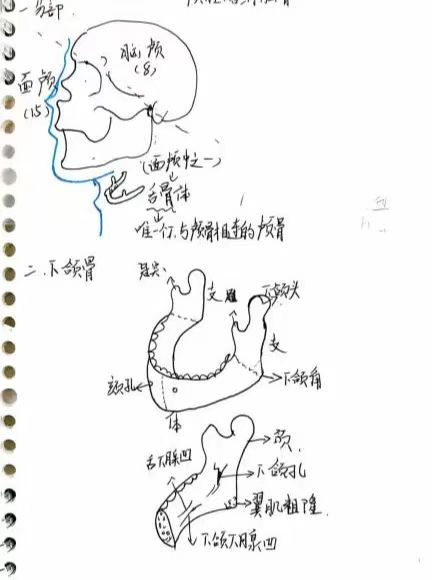 一 分部
脑颅
(8)
面颅
(15)
(面颅中之一)
舌骨体
唯一不与颅骨相连的颅骨
二.下颌骨
支
支
颏孔
下颌角
体
舌下腺凹
颈
下颌孔
翼肌粗隆
下颌下腺凹